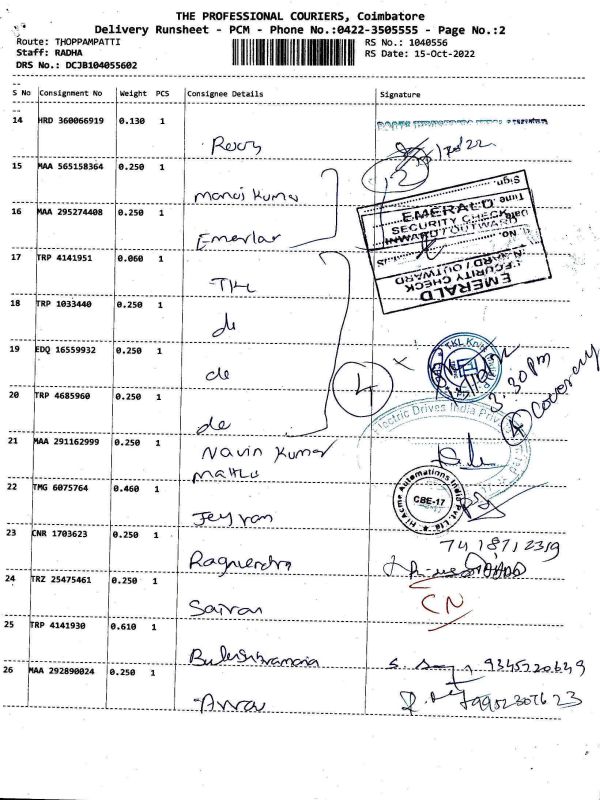 THE PROFESSIONAL COURIERS, Coimbatore
Delivery Runsheet - PCM - Phone No.:0422-3505555 - Page No.:2
Route: THOPPAMPATTI
RS No.: 1040556
Staff: RADHA
RS Date: 15-Oct-2022
DRS No.: DCJB104055602
S No Consignment No Weight PCS Consignee Details Signature
14 HRD 360066919 0.130 1
15 MAA 565158364 0.250 1
manoj Kumar
16 MAA 295274408 0.250 1
12
Sign.
Time
Date
No.
EMERALD
SECURITY CHECK
INWARD / OUTWARD
17 TRP 4141951 0.060 1
TKL
EMERALD
SECURITY CHECK
INWARD / OUTWARD
18 TRP 1033440 0.250 1
do
19 EDQ 16559932 0.250 1
do
4
3.30 pm
20 TRP 4685960 0.250 1
do
4
Electric Drives India Priv
21 MAA 291162999 0.250 1
Navin Kumar
22 TMG 6075764 0.460 1
Hi Acme Automations India Pvt. Ltd.
CBE-17
Jeyram
23 CNR 1703623 0.250 1
Raguendra
24 TRZ 25475461 0.250 1
CN
Sairam
25 TRP 4141930 0.610 1
9345720649
26 MAA 292890024 0.250 1
9952307623